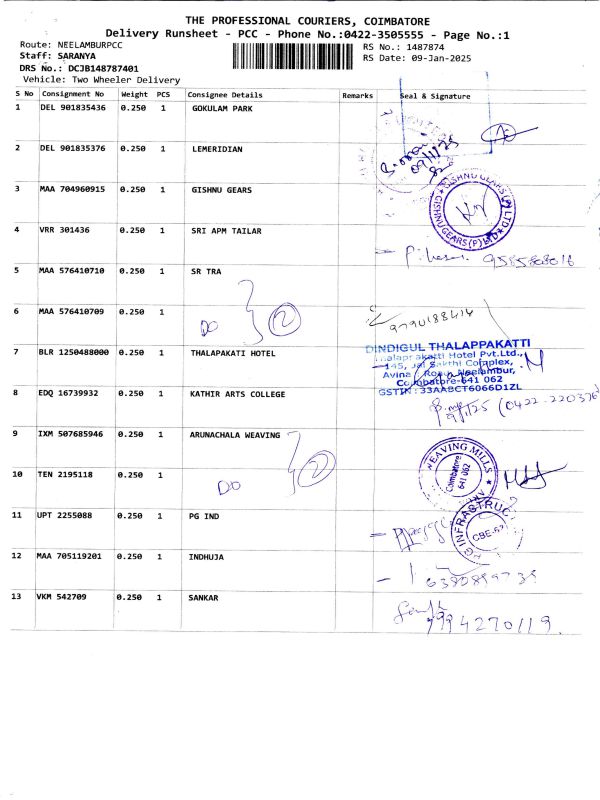 THE PROFESSIONAL COURIERS, COIMBATORE
Delivery Runsheet - PCC - Phone No.:0422-3505555 - Page No.:1
Route: NEELAMBURPCC
RS No.: 1487874
Staff: SARANYA
RS Date: 09-Jan-2025
DRS No.: DCJB148787401
Vehicle: Two Wheeler Delivery
S No Consignment No Weight PCS Consignee Details Remarks Seal & Signature
1 DEL 901835436 0.250 1 GOKULAM PARK
2 DEL 901835376 0.250 1 LEMERIDIAN
09/1/25
3 MAA 704960915 0.250 1 GISHNU GEARS
GISHNU GEARS (P) LTD
4 VRR 301436 0.250 1 SRI APM TAILAR
9585808016
5 MAA 576410710 0.250 1 SR TRA
6 MAA 576410709 0.250 1
DO 2
9790188414
7 BLR 1250488000 0.250 1 THALAPAKATI HOTEL
DINDIGUL THALAPPAKATTI
Thalaprakatti Hotel Pvt.Ltd.,
145, Jai Sakthi Complex,
Avina Road, Neelambur,
Coimbatore-641 062
GSTIN : 33AABCT6066D1ZL
8 EDQ 16739932 0.250 1 KATHIR ARTS COLLEGE
9/1/25 (0422-220376
9 IXM 507685946 0.250 1 ARUNACHALA WEAVING
WEAVING MILLS
Coimbatore
641 062
10 TEN 2195118 0.250 1
DO 2
11 UPT 2255088 0.250 1 PG IND
PG INFRASTRUC
CBE-62
12 MAA 705119201 0.250 1 INDHUJA
6380899739
13 VKM 542709 0.250 1 SANKAR
7994270119